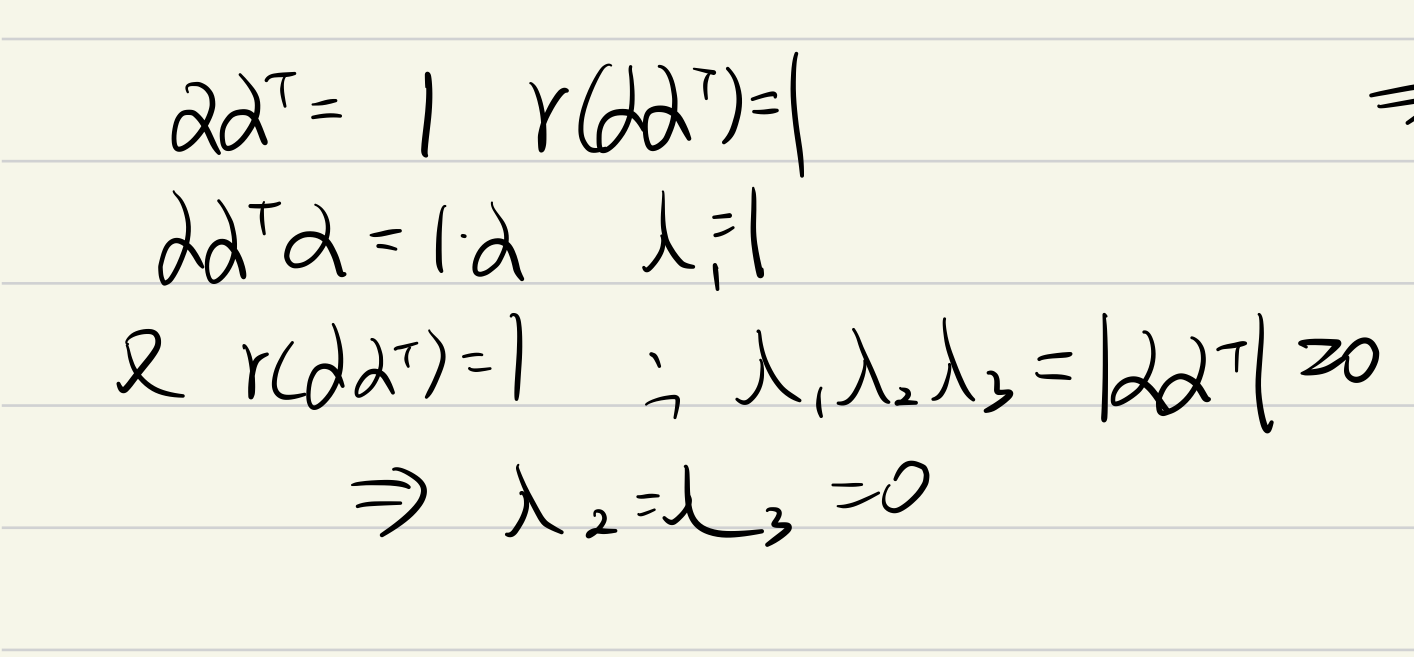 αα^T = 1 r(αα^T)=1 ⇒
αα^Tα = 1·α λ₁=1
又 r(αα^T)=1 ∴ λ₁λ₂λ₃ = |αα^T| =0
⇒ λ₂=λ₃ =0